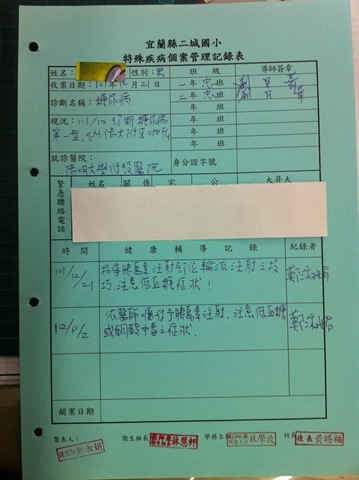 宜蘭縣二城國小
特殊疾病個案管理記錄表
姓名: 性別:男 班級 導師簽章
收案日期:101年12月21日 一年忠班
診斷名稱:糖尿病 二年忠班
現況:101/12 診斷糖尿病
第一型
就診醫院: 身分證字號
陽明大學附設醫院
緊急聯絡電話
姓名 關係 宅 公 大哥大
時間 健康輔導記錄 紀錄者
101/12/21 指導胰島素注射部位輪流注射之技
巧,注意低血糖症狀!
依醫師囑付予胰島素注射,注意低血糖
或酮酸中毒之症狀.
銷案日期
製表人: 衛生組長 林慧軒 學務主任 林學政 校長 黃賜福